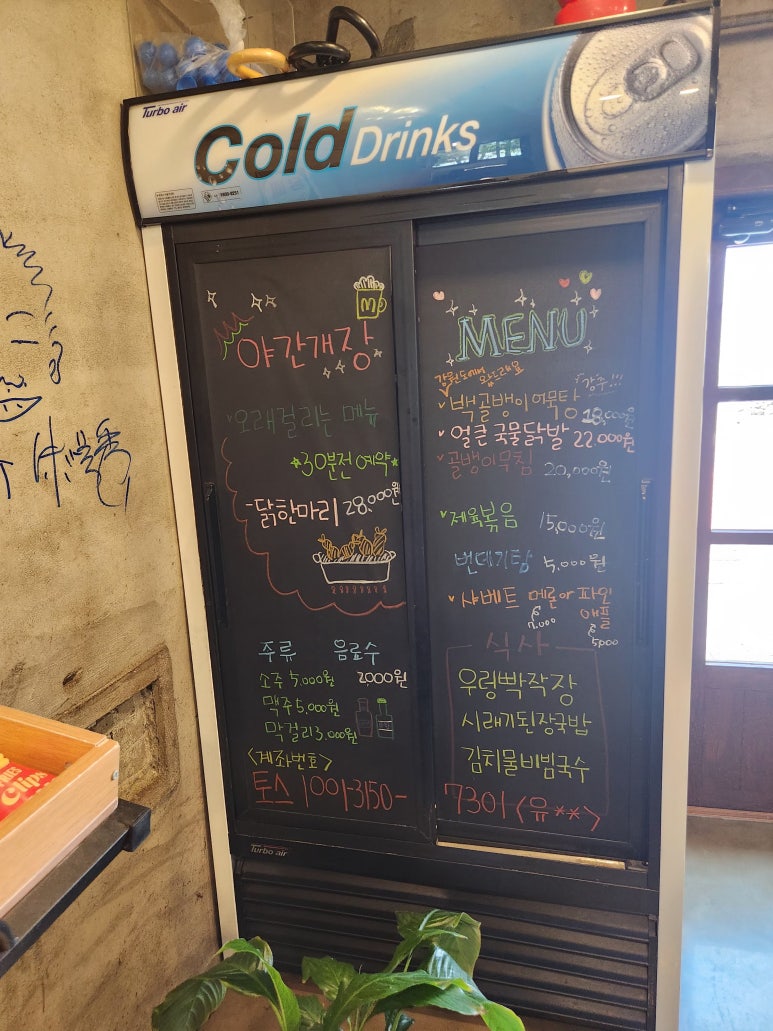 Turbo air
Cold Drinks
야간개장
오래걸리는 메뉴
30분전 예약
-닭한마리 28,000원
주류 음료수
소주 5,000원 2,000원
맥주 5,000원
막걸리 3,000원
<계좌번호>
토스 1001-3150-
Turbo air
MENU
강원도에서
강추!!!
백골뱅이어묵탕 18,000원
얼큰 국물닭발 22.000원
골뱅이무침 20,000원
제육볶음 15,000원
번데기탕 5,000원
샤베트 메론 or 파인애플
7,000
5,000
식사
우렁빡작장
시래기된장국밥
김치물비빔국수
7301 <유**>
Clips